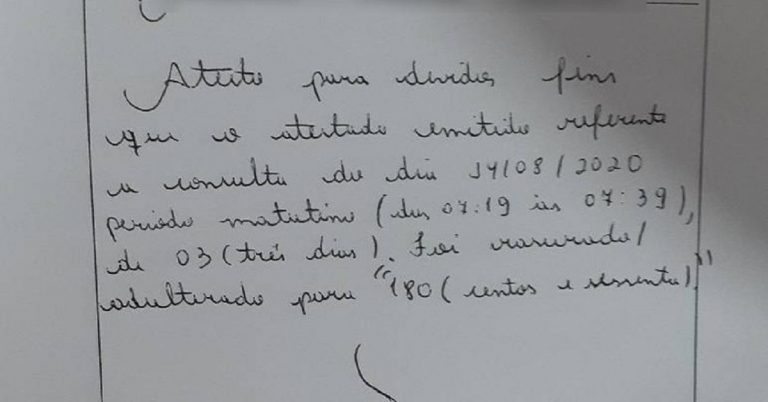 Atesto para devidos fins
que o atestado emitido referente
a consulta do dia 14/08/2020
período matutino (das 07:19 às 07:39),
de 03 (três dias). Foi rasurado/
adulterado para "180 (centos e sessenta)"